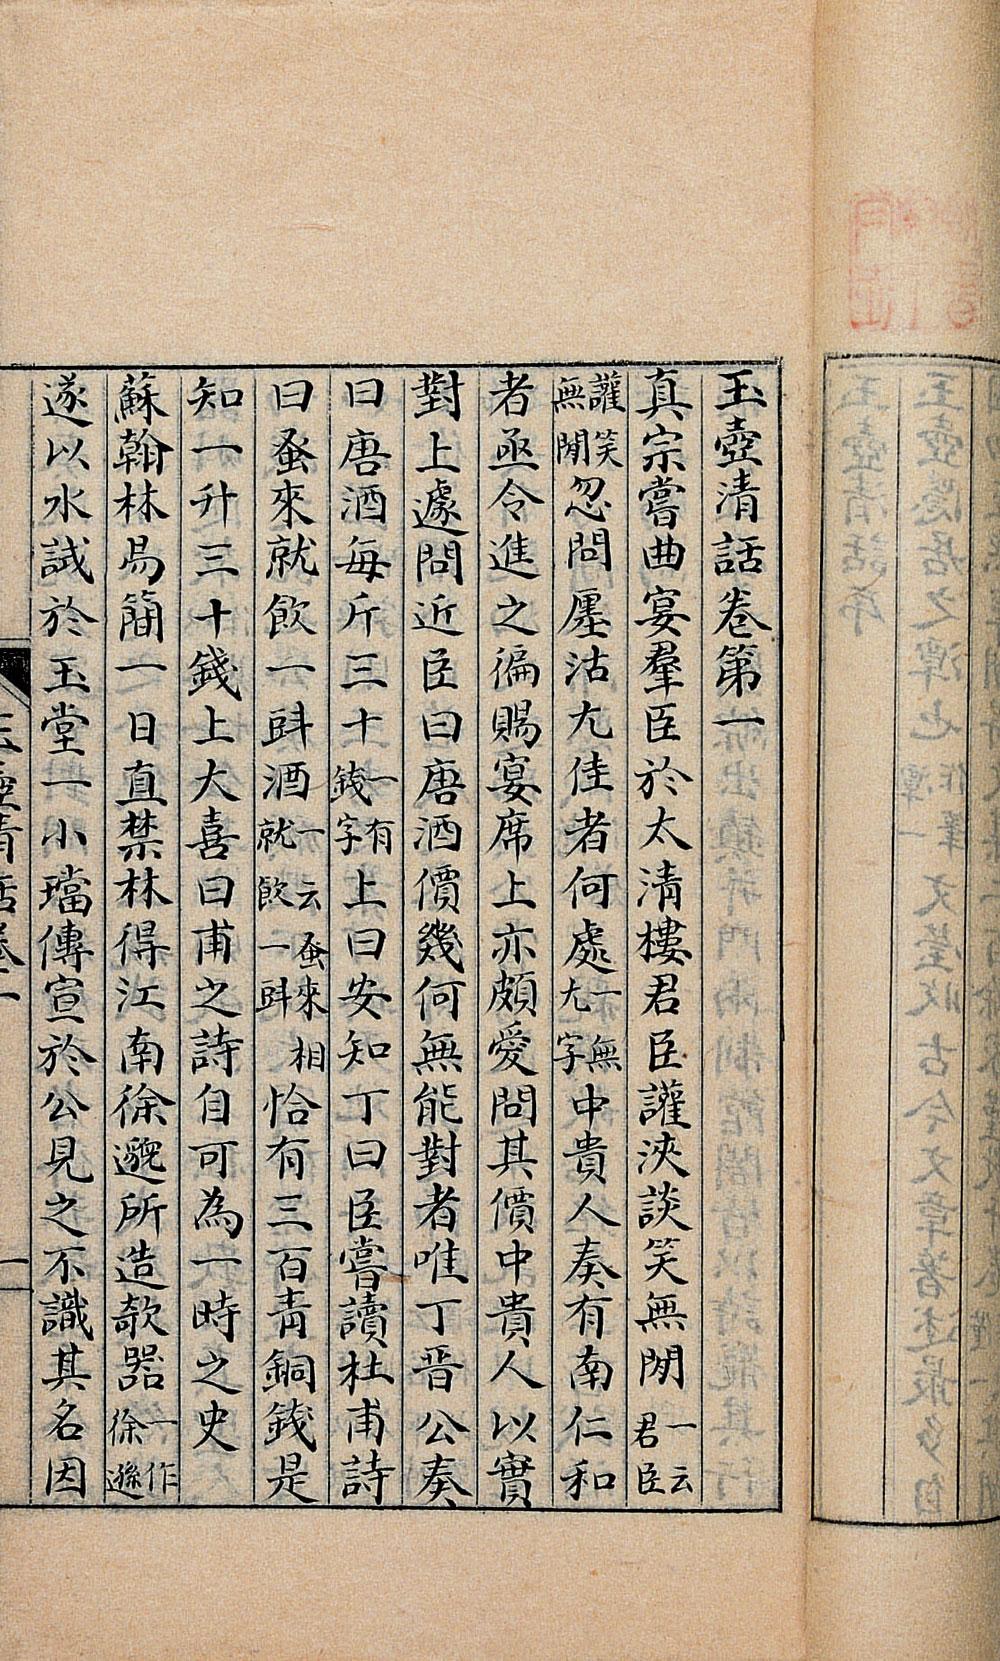 玉壺清話卷第一
真宗嘗曲宴羣臣於太清樓君臣讙浹談笑無閒一云君臣
讙笑無閒忽問廛沽尢佳者何處一無尢字中貴人奏有南仁和
者亟令進之徧賜宴席上亦頗愛問其價中貴人以實
對上遽問近臣曰唐酒價幾何無能對者唯丁晋公奏
曰唐酒每斤三十一有錢字上曰安知丁曰臣嘗讀杜甫詩
曰蚤來就飲一㪷酒一云蚤來相就飲一㪷恰有三百青銅錢是
知一升三十錢上大喜曰甫之詩自可為一時之史
蘇翰林易簡一日直禁林得江南徐邈所造欹器一作徐遜
遂以水試於玉堂一小璫傳宣於公見之不識其名因